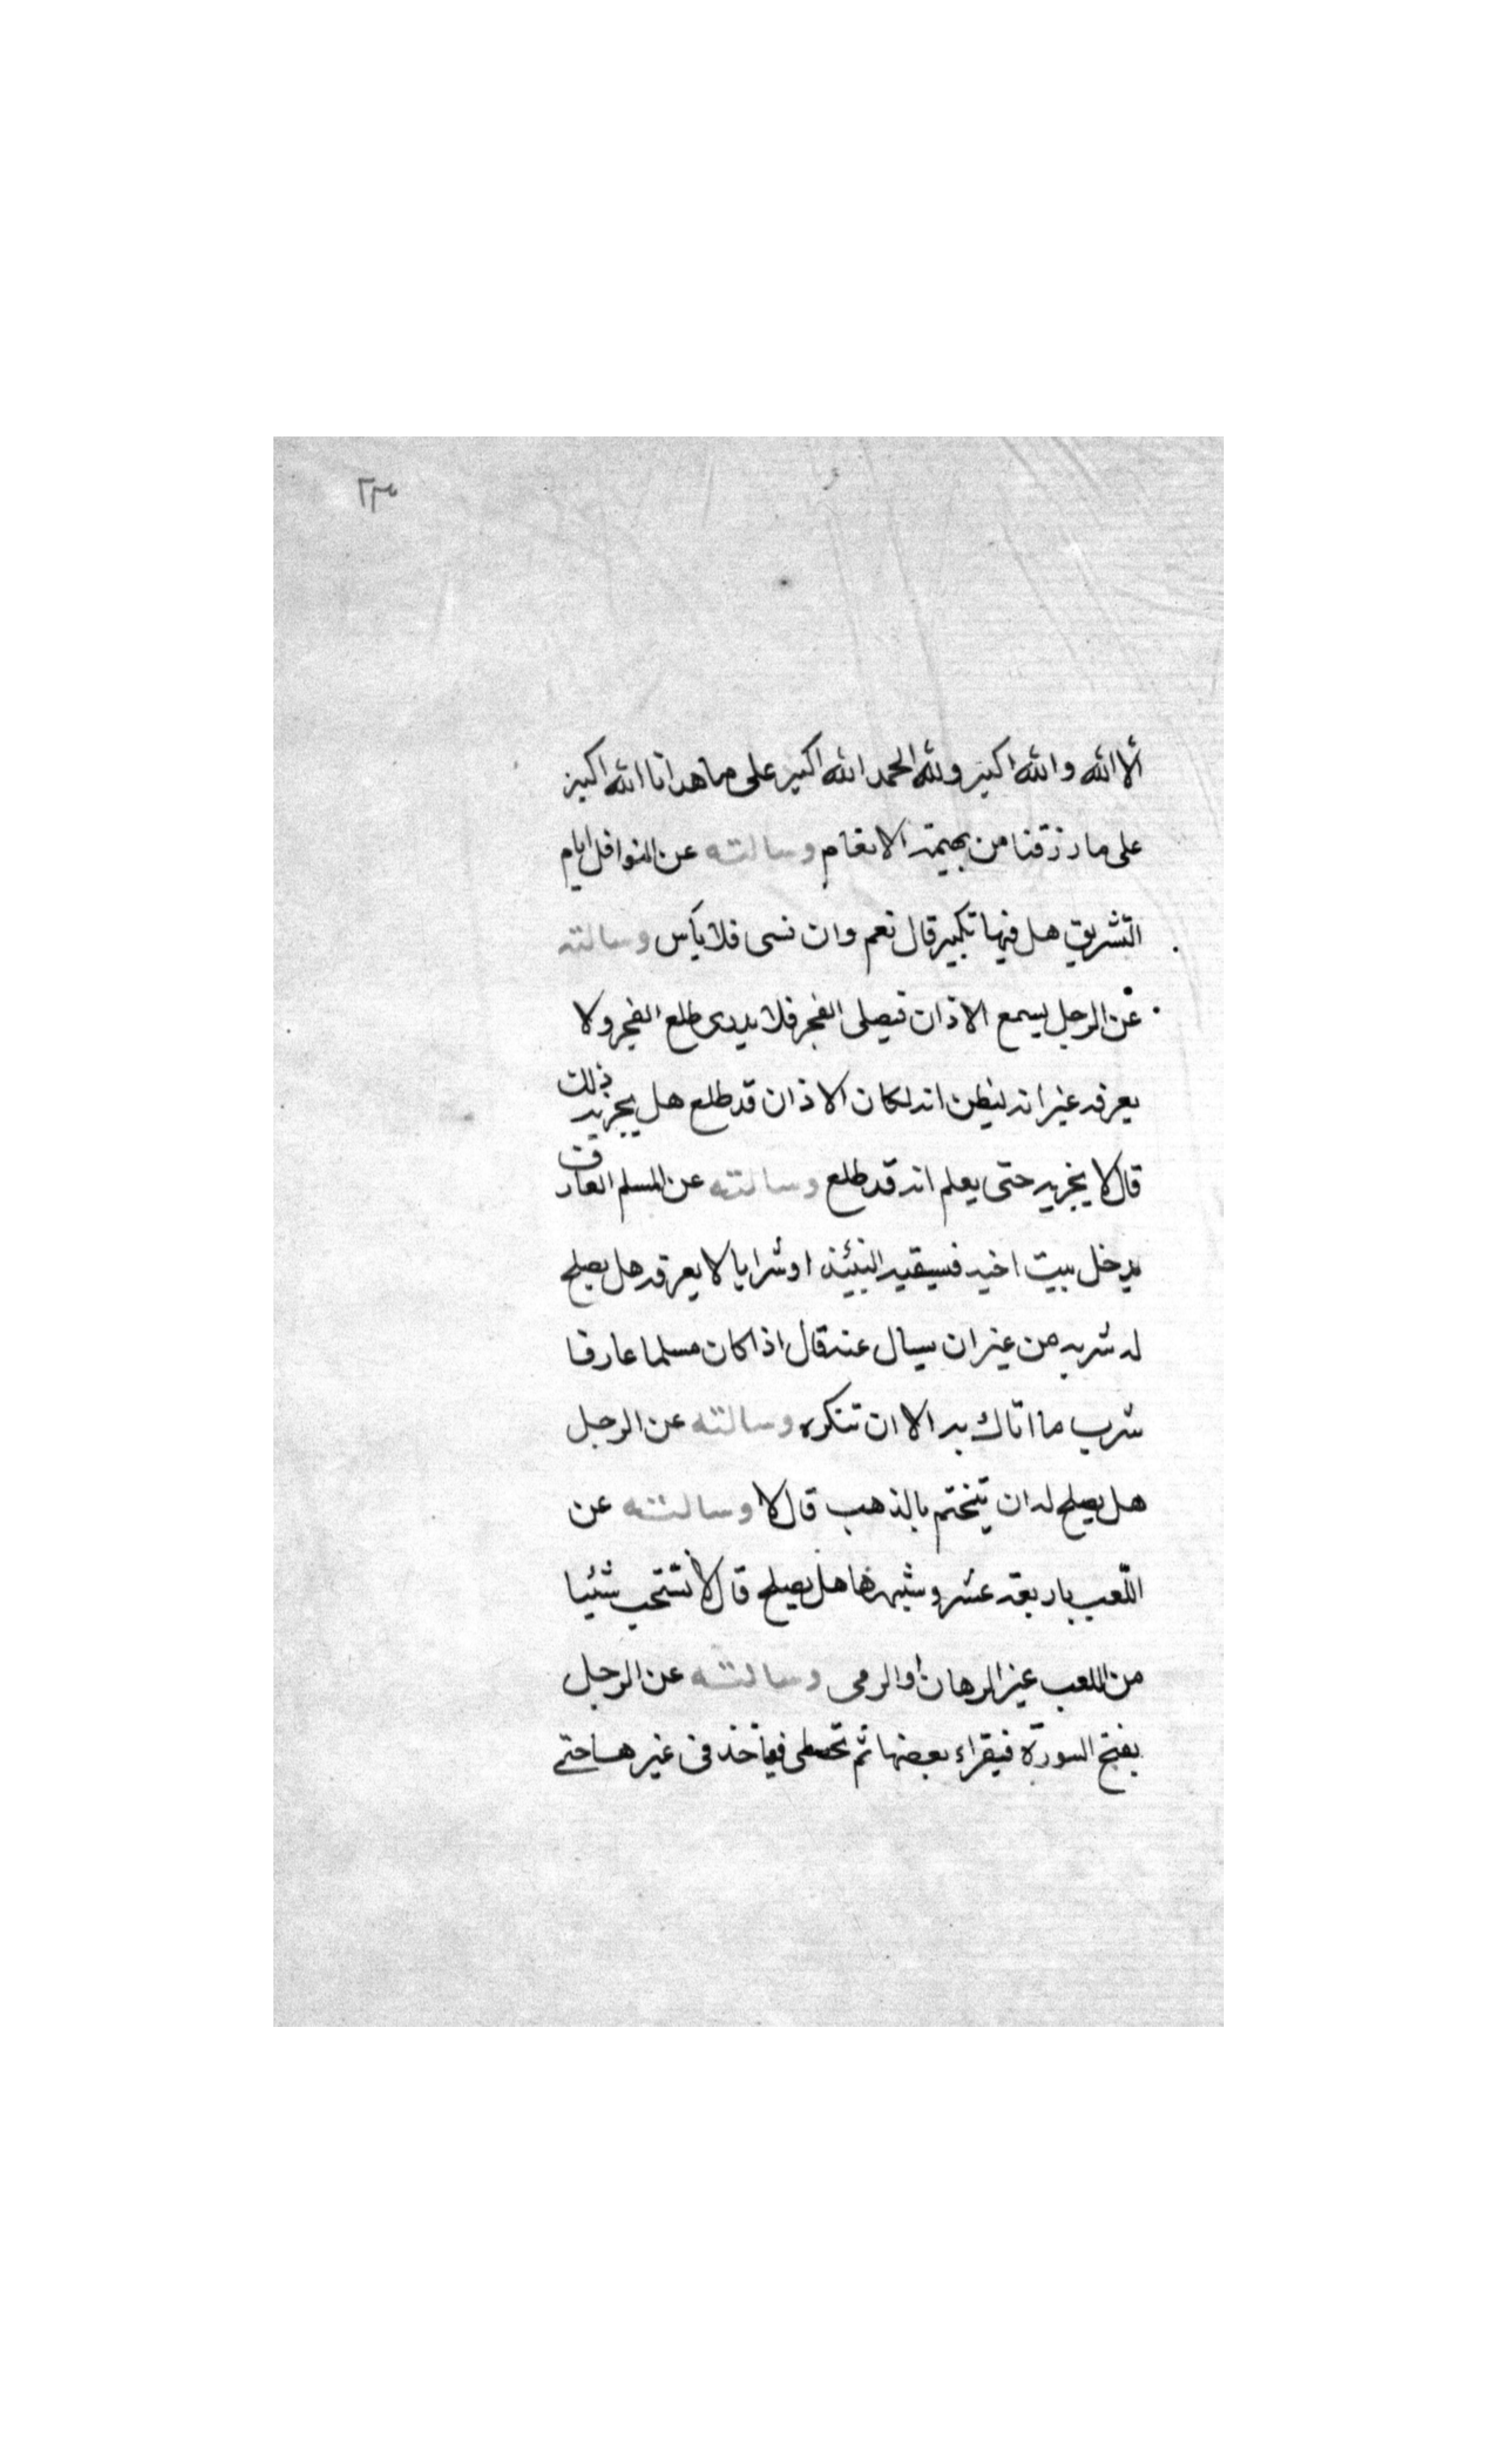 ٢٣
الا الله والله اكبر ولله الحمد الله اكبر على ما هدانا الله اكبر
على ما رزقنا من بهيمة الانعام وسالته عن النوافل ايام
التشريق هل فيها تكبير قال نعم وان نسى فلا باس وسالته
عن الرجل يسمع الاذان فيصلى الفجر فلا يدرى طلع الفجر ولا
يعرفه غير انه ليظن انه لمكان الاذان قد طلع هل يجزيه ذلك
قال لا يجزيه حتى يعلم انه قد طلع وسالته عن المسلم العارف
يدخل بيت اخيه فيسقيه النبيذ او شرابا لا يعرفه هل يصلح
له شربه من غير ان يسال عنه قال اذا كان مسلما عارفا
شرب ما اتاك به الا ان تنكره وسالته عن الرجل
هل يصلح له ان يتختم بالذهب قال لا وسالته عن
اللعب باربعة عشر وشبهها هل يصلح قال لا نستحب شيئا
من اللعب غير الرهان او الرمى وسالته عن الرجل
يفتح السورة فيقراء بعضها ثم تخطى فياخذ فى غيرها حتى